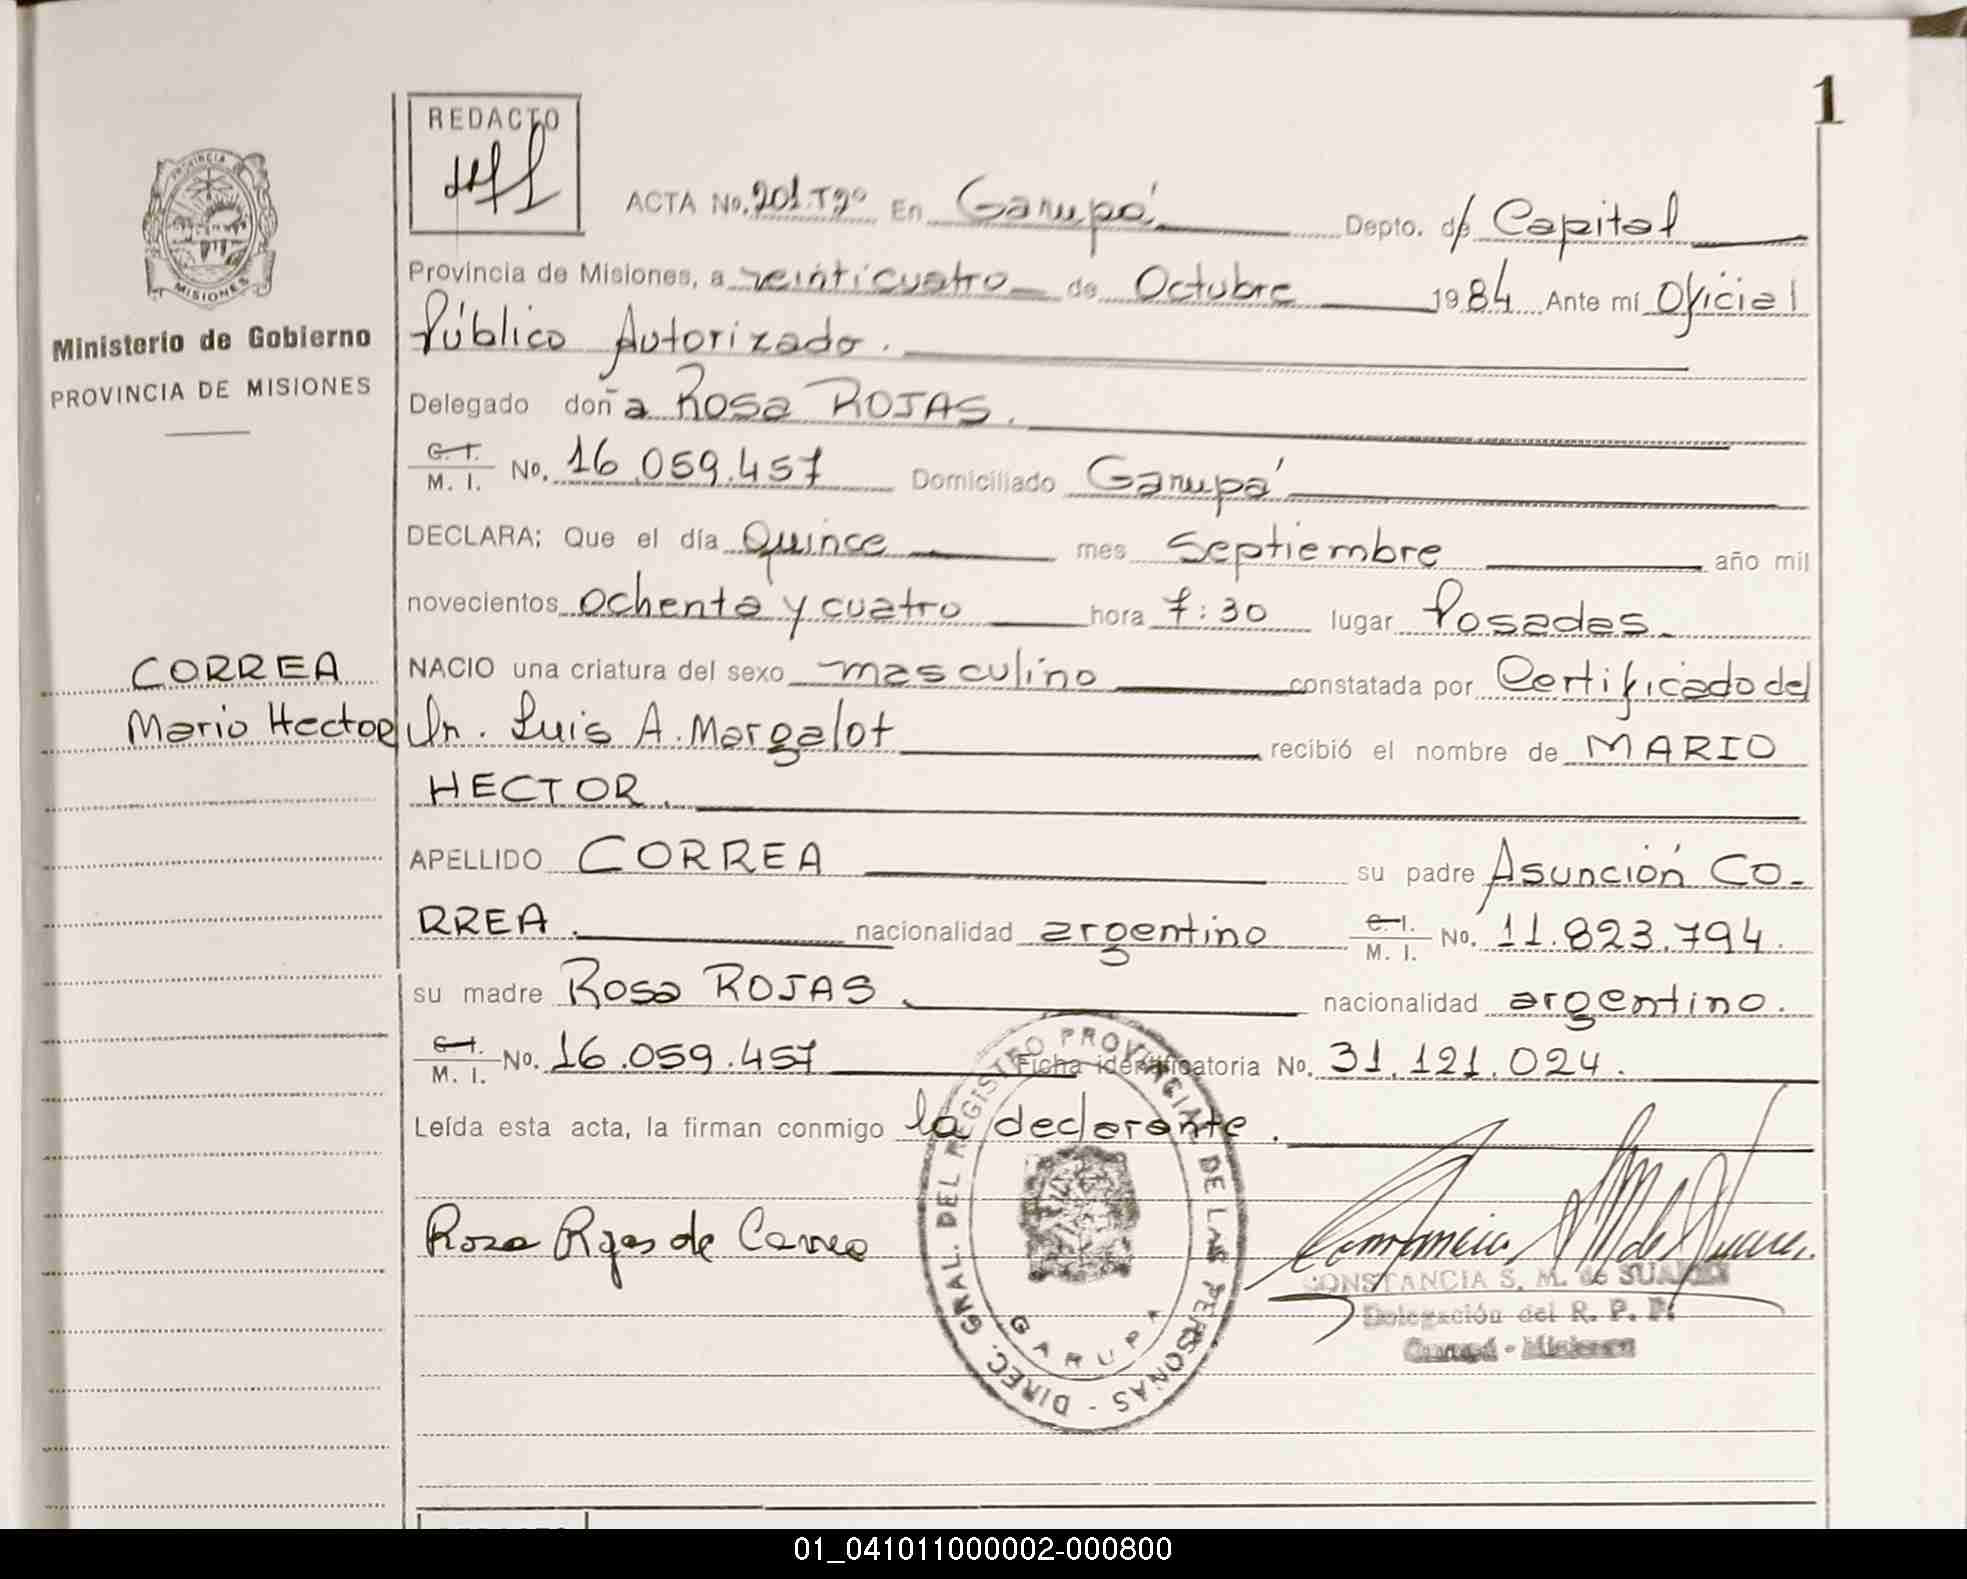 1
REDACTO
PROVINCIA
MISIONES
Ministerio de Gobierno
PROVINCIA DE MISIONES
ACTA No. 201.Tº2º En Garupá Depto. d/ Capital
Provincia de Misiones, a veinticuatro de Octubre 1984 Ante mí Oficial
Público Autorizado.
Delegado doña Rosa ROJAS.
C. I.
M. I. No. 16.059.457 Domiciliado Garupá
DECLARA; Que el día Quince mes Septiembre año mil
novecientos ochenta y cuatro hora 7:30 lugar Posadas.
CORREA
Mario Hector
NACIO una criatura del sexo masculino constatada por Certificado del
Dr. Luis A. Margalot recibió el nombre de MARIO
HECTOR.
APELLIDO CORREA su padre Asunción CO-
RREA. nacionalidad argentino C. I. M. I. No. 11.823.794.
su madre Rosa ROJAS. nacionalidad argentino.
C. I.
M. I. No. 16.059.457 Ficha identificatoria No. 31.121.024.
Leída esta acta, la firman conmigo la declarante.
Rosa Rojas de Correa
DIREC. GRAL. DEL REGISTRO PROVINCIAL DE LAS PERSONAS -
GARUPA
CONSTANCIA S. M. de SUAREZ
Delegación del R. P. P.
Garupá - Misiones
01_041011000002-000800